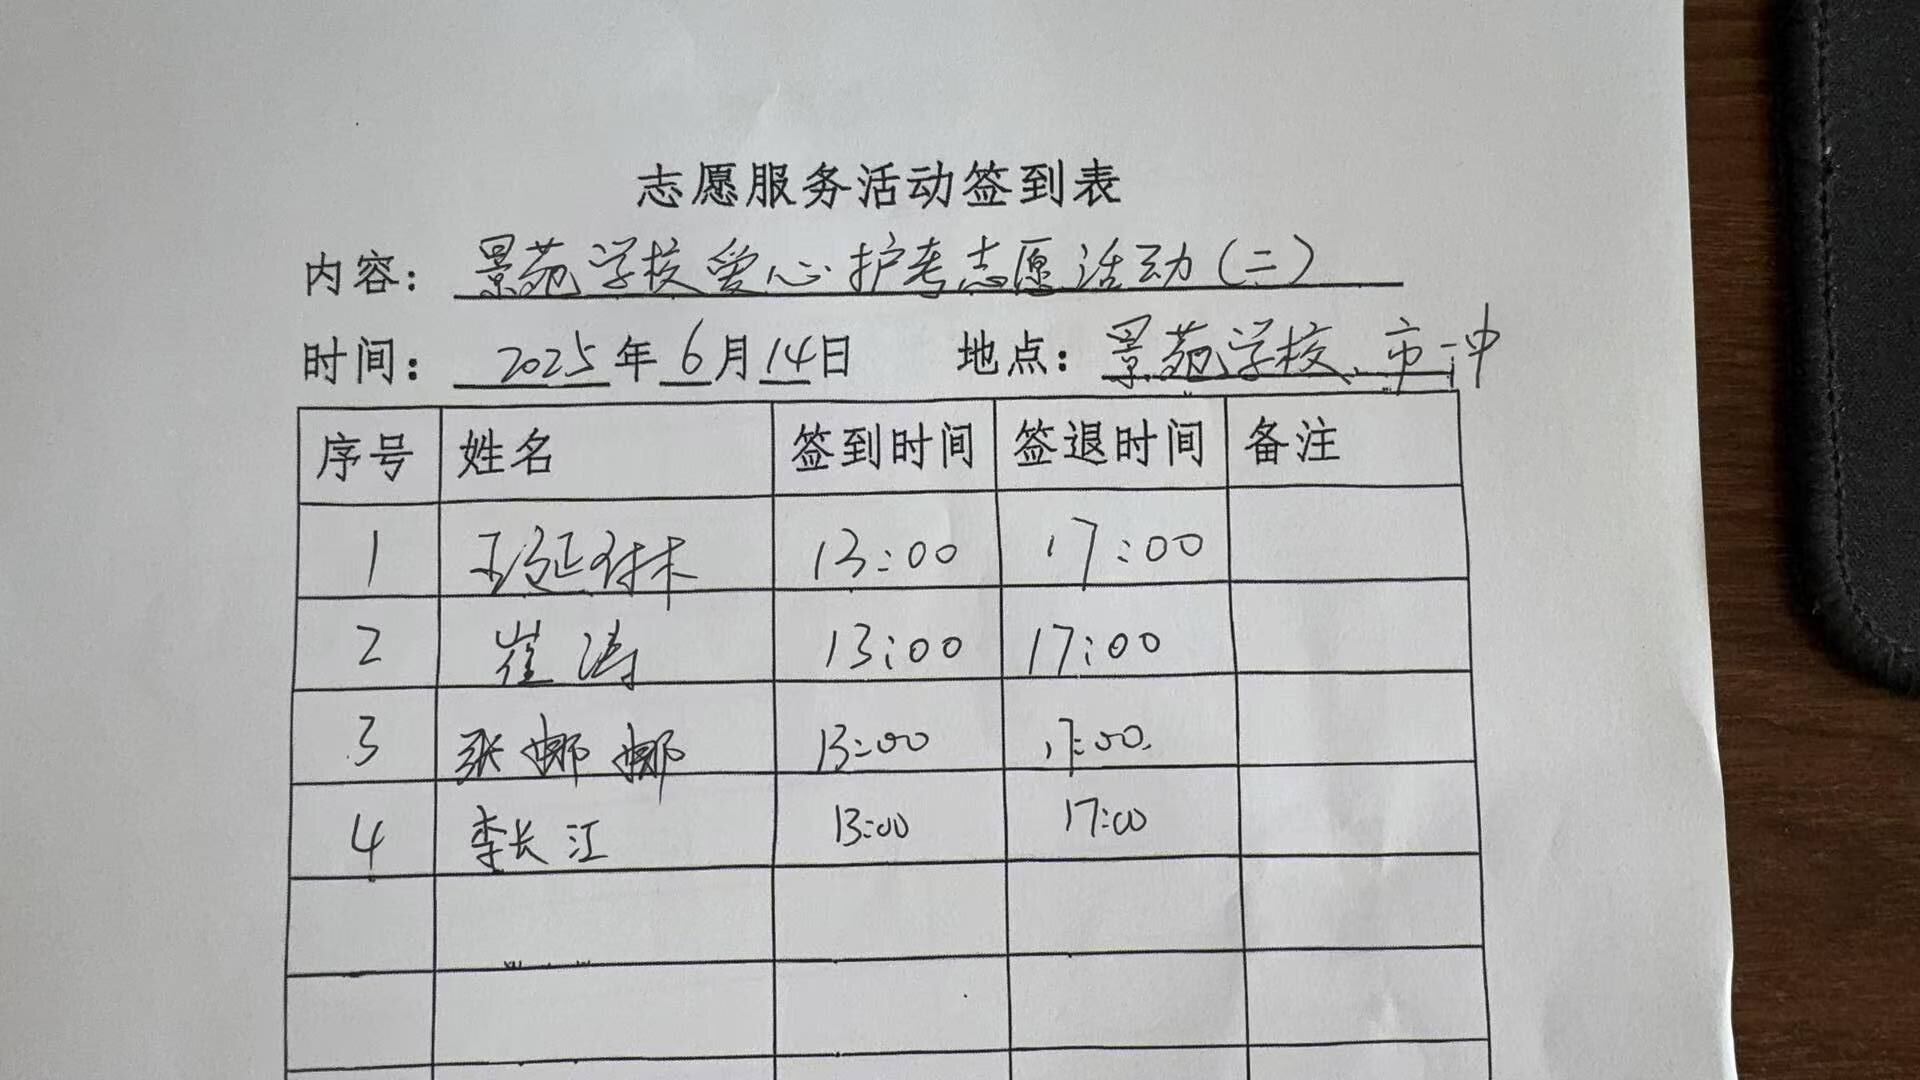 志愿服务活动签到表
内容：景苑学校爱心护考志愿活动（二）
时间：2025年6月14日 地点：景苑学校、市一中
序号 姓名 签到时间 签退时间 备注
1 13:00 17:00
2 崔涛 13:00 17:00
3 张娜娜 13:00 17:00
4 李长江 13:00 17:00